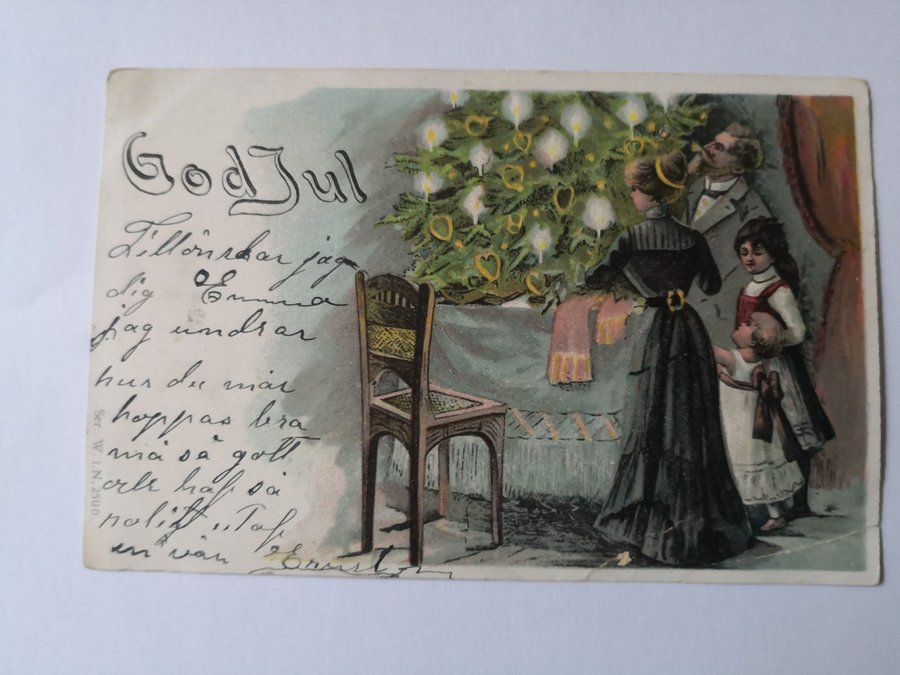 God Jul
Tillönskar jag
dig Emma
jag undrar
hur du mår
hoppas bra
må så gott
och haf så
roligt utaf
en vän Ernst
Ser W. I.N. 2500